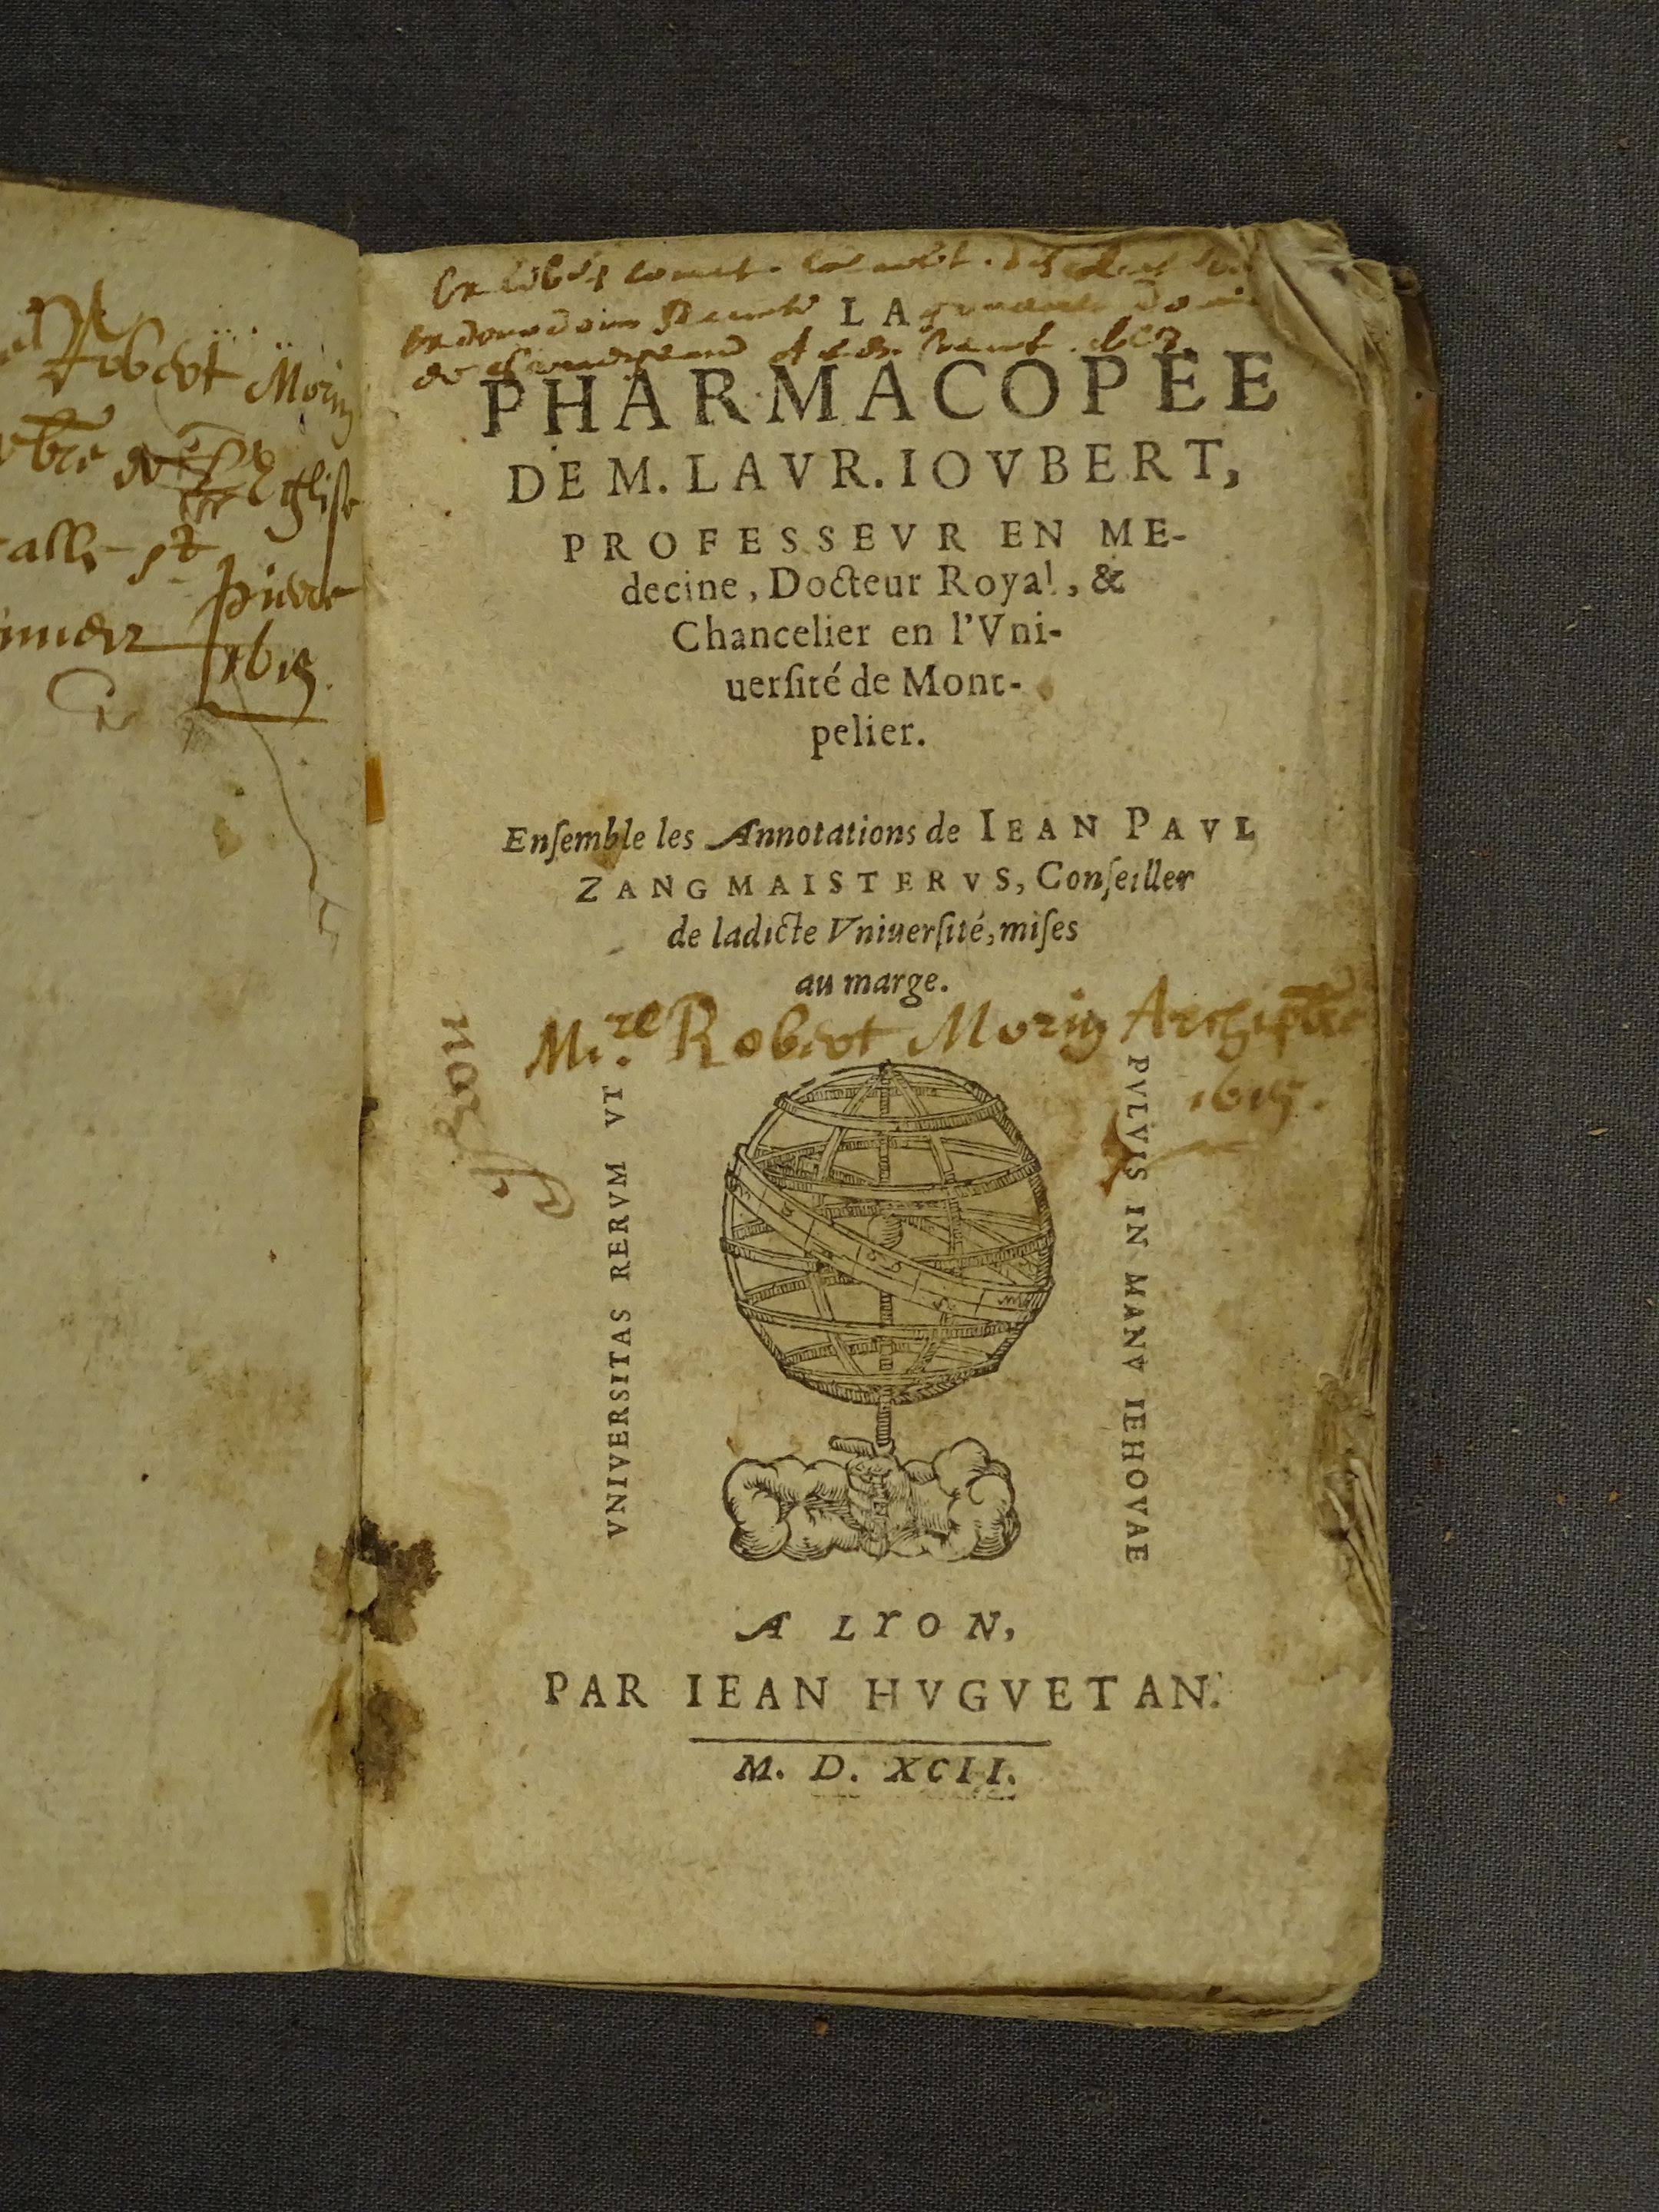 Robert Morin
Eglise
st
pierre
1615.
Ex libris
LA
PHARMACOPEE
DE M. LAVR. IOVBERT,
PROFESSEVR EN ME-
decine, Docteur Royal, &
Chancelier en l'Vni-
uerſité de Mont-
pelier.
Enſemble les Annotations de IEAN PAVL
ZANGMAISTERVS, Conſeiller
de ladicte Vniuerſité, miſes
au marge.
M.re Robert Morin Archiptre
1615.
VNIVERSITAS RERVM VT
PVLVIS IN MANV IEHOVAE
A LYON,
PAR IEAN HVGVETAN.
M. D. XCII.